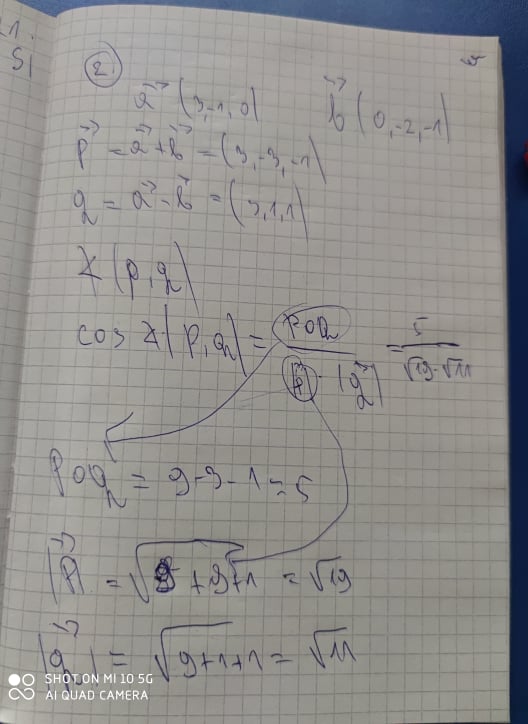 1.
S
2
a⃗ (3,-1,0) b⃗ (0,-2,-1)
p⃗ = a⃗ + b⃗ = (3,-3,-1)
q = a⃗ - b⃗ = (3,1,1)
∢(p,q)
cos ∢(p,q) = poq / |p⃗|·|q⃗| = 5 / √19·√11
poq = 9-3-1=5
|p⃗| = √9+9+1 = √19
|q⃗| = √9+1+1 = √11
SHOT ON MI 10 5G
AI QUAD CAMERA